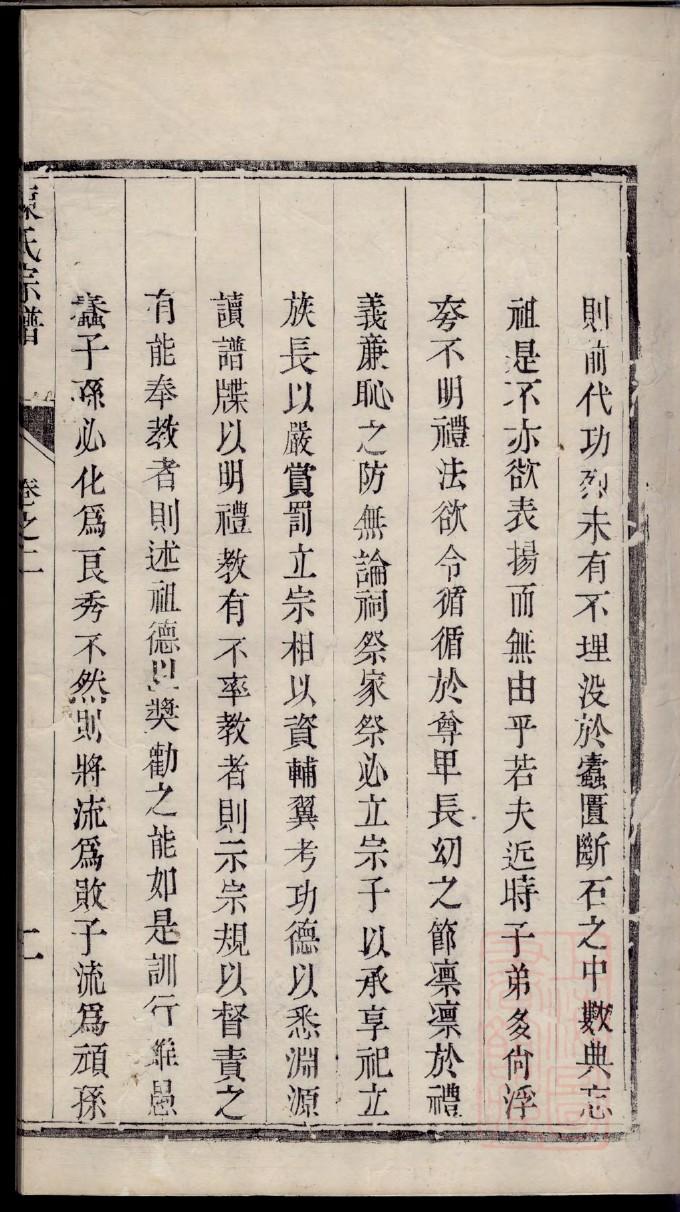 則前代功烈未有不埋没於蠹匱斷石之中數典忘
祖是不亦欲表揚而無由乎若夫近時子弟多尙浮
夸不明禮法欲令循循於尊卑長幼之節凛凛於禮
義亷恥之防無論祠祭家祭必立宗子以承享祀立
族長以嚴賞罰立宗相以資輔翼考功德以悉淵源
讀譜牒以明禮教有不率教者則示宗規以督責之
有能奉教者則述祖德以奬勸之能如是訓行雖愚
蠢子孫必化爲良秀不然則將流爲敗子流爲頑孫
氏宗譜
卷之二
二